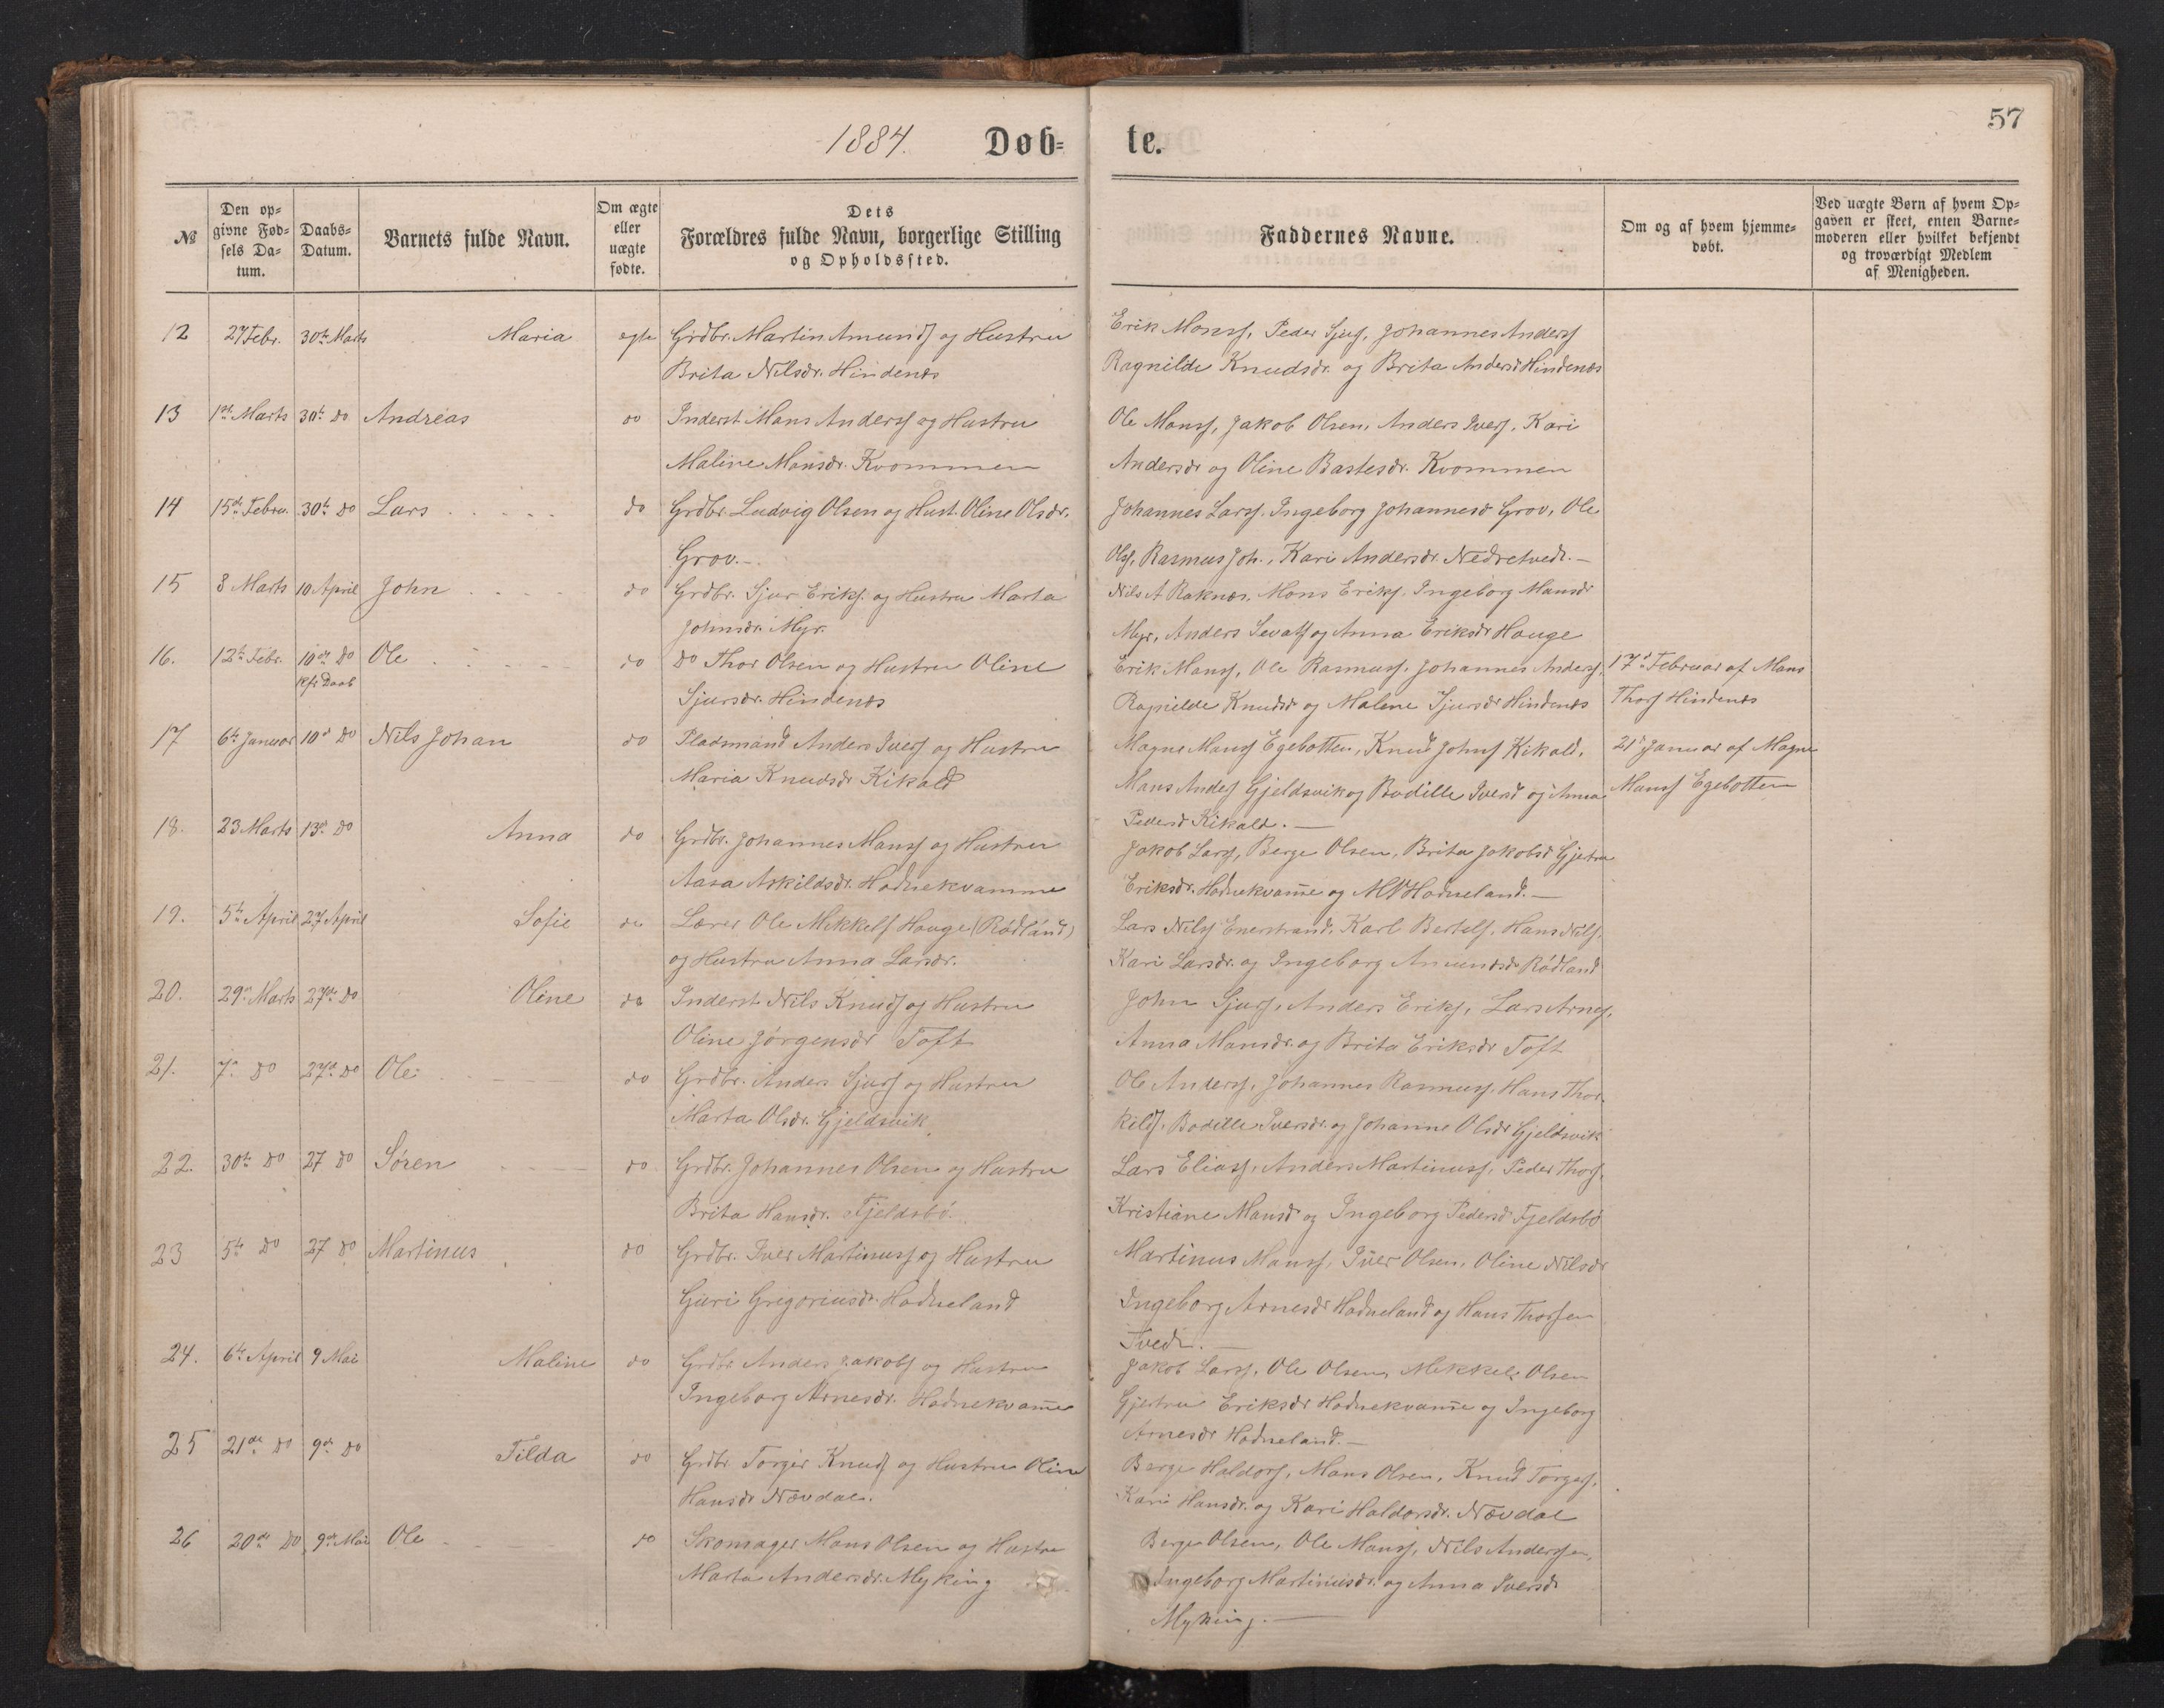 57
1884. Døb= te.
№ Den op=givne Fød=sels Da=tum. Daabs=Datum. Barnets fulde Navn. Om ægte eller uægte fødte. Dets Forældres fulde Navn, borgerlige Stilling og Opholdssted. Faddernes Navne. Om og af hvem hjemme=døbt. Ved uægte Børn af hvem Op=gaven er skeet, enten Barne=moderen eller hvilket bekjendt og troværdigt Medlem af Menigheden.
12 27 Febr. 30te Marts Maria egte Grdbr. Martin Amunds og Hustru Erik Monss, Peder Sjurs, Johannes Anderss
Brita Nilsdr. Hindenes Ragnilde Knudsdr. og Brita Andersd Hindenes
13 1ste Marts 30te do Andreas do Inderst Mons Anderss og Hustru Ole Monss, Jakob Olsen, Anders Ivers, Kari
Maline Monsdr. Kvommen Andersdr og Oline Bastesdr. Kvommen
14 15de Febru. 30te do Lars do Grdbr. Ludvig Olsen og Hust. Oline Olsdr. Johannes Larss, Ingeborg Johannesd Grov, Ole
Grov.- Olss, Rasmus Joh., Kari Andersdr. Nedretvedt.-
15 8 Marts 10 April John do Grdbr. Sjur Eriks. og Hustru Marta Nils A Raknes, Mons Eriks, Ingeborg Monsdr
Johnsdr. Myr. Myr, Anders Sevats og Anna Eriksdr Hauge
16. 12te Febr. 10de do Ole do do Thor Olsen og Hustru Oline Erik Monss, Ole Rasmuss, Johannes Anderss, 17de Februar af Mons
Daab Sjursdr. Hindenes Ragnilde Knudsd og Malene Sjursdr Hindenes Thors Hindenes
17 6te Januar 10d do Nils Johan do Pladsmand Anders Ivers og Hustru Magne Monss Egebotten, Knud Johns Kikald, 21d Januar af Magne
Maria Knudsdr Kikald Mons Anders Gjeldsvik og Bodille Iversd og Anna Monss Egebotten
Pedersd Kikald. —
18. 23 Marts 13d do Anna do Grdbr. Johannes Monss og Hustru Jakob Larss, Berge Olsen, Brita Jakobsd Gjertru
Aasa Askildsdr. Hodnekvamme Eriksdr. Hodnekvam̅e og Hodneland.—
19. 5te April 27 April Sofie do Lærer Ole Mikkels Hauge (Rødland) Lars Nilss Enerstrand, Karl Bertels, Hans Nilss,
og Hustru Anna Larsdr. Kari Larsdr. og Ingeborg Amundsdr Rødland
20. 29de Marts 27de do Oline do Inderst Nils Knuds og Hustru John Sjurs, Anders Eriks, Lars Arnes,
Oline Jørgensdr Toft Anna Monsdr. og Brita Eriksdr Toft
21. 7de do 27de do Ole do Grdbr. Anders Sjurs og Hustru Ole Anderss, Johannes Rasmuss, Hans Thor-
Marta Olsdr. Gjeldsvik kilds, Bodille Iversdr. og Johanne Olsdr Gjeldsvik
22. 30te do 27 do Søren do Grdbr. Johannes Olsen og Hustru Lars Eliass, Anders Martinuss, Peder Thors,
Brita Hansdr. Fjeldsbø. Kristiane Monsd og Ingeborg Pedersd Fjeldsbø
23 5te do 27 do Martinus do Grdbr. Iver Martinuss og Hustru Martinus Monss, Iver Olsen, Oline Nilsdr
Guri Gregoriusdr. Hodneland Ingeborg Arnesdr Hodneland og Hans Thorsen
Tvedt. —
24. 6te April 9 Mai Maline do Grdbr. Anders Jakobs og Hustru Jakob Larss, Ole Olsen, Mikkel Olsen
Ingeborg Arnesdr. Hodnekvam̅e Gjertru Eriksdr Hodnekvam̅e og Ingeborg
Arnesdr Hodneland.—
25 21de do 9de do Tilda do Grdbr Torger Knuds og Hustru Oline Berge Haldors, Mons Olsen, Knud Torgers,
Hansdr Nævdal. Kari Hansdr. og Kari Haldorsdr. Nævdal
26 20de do 9de Mai Ole do Skomager Mons Olsen og Hustru Berge Olsen, Ole Monss, Nils Anderssen,
Marta Andersdr. Myking Ingeborg Martinusdr. og Anna Iversdr
Myking. —